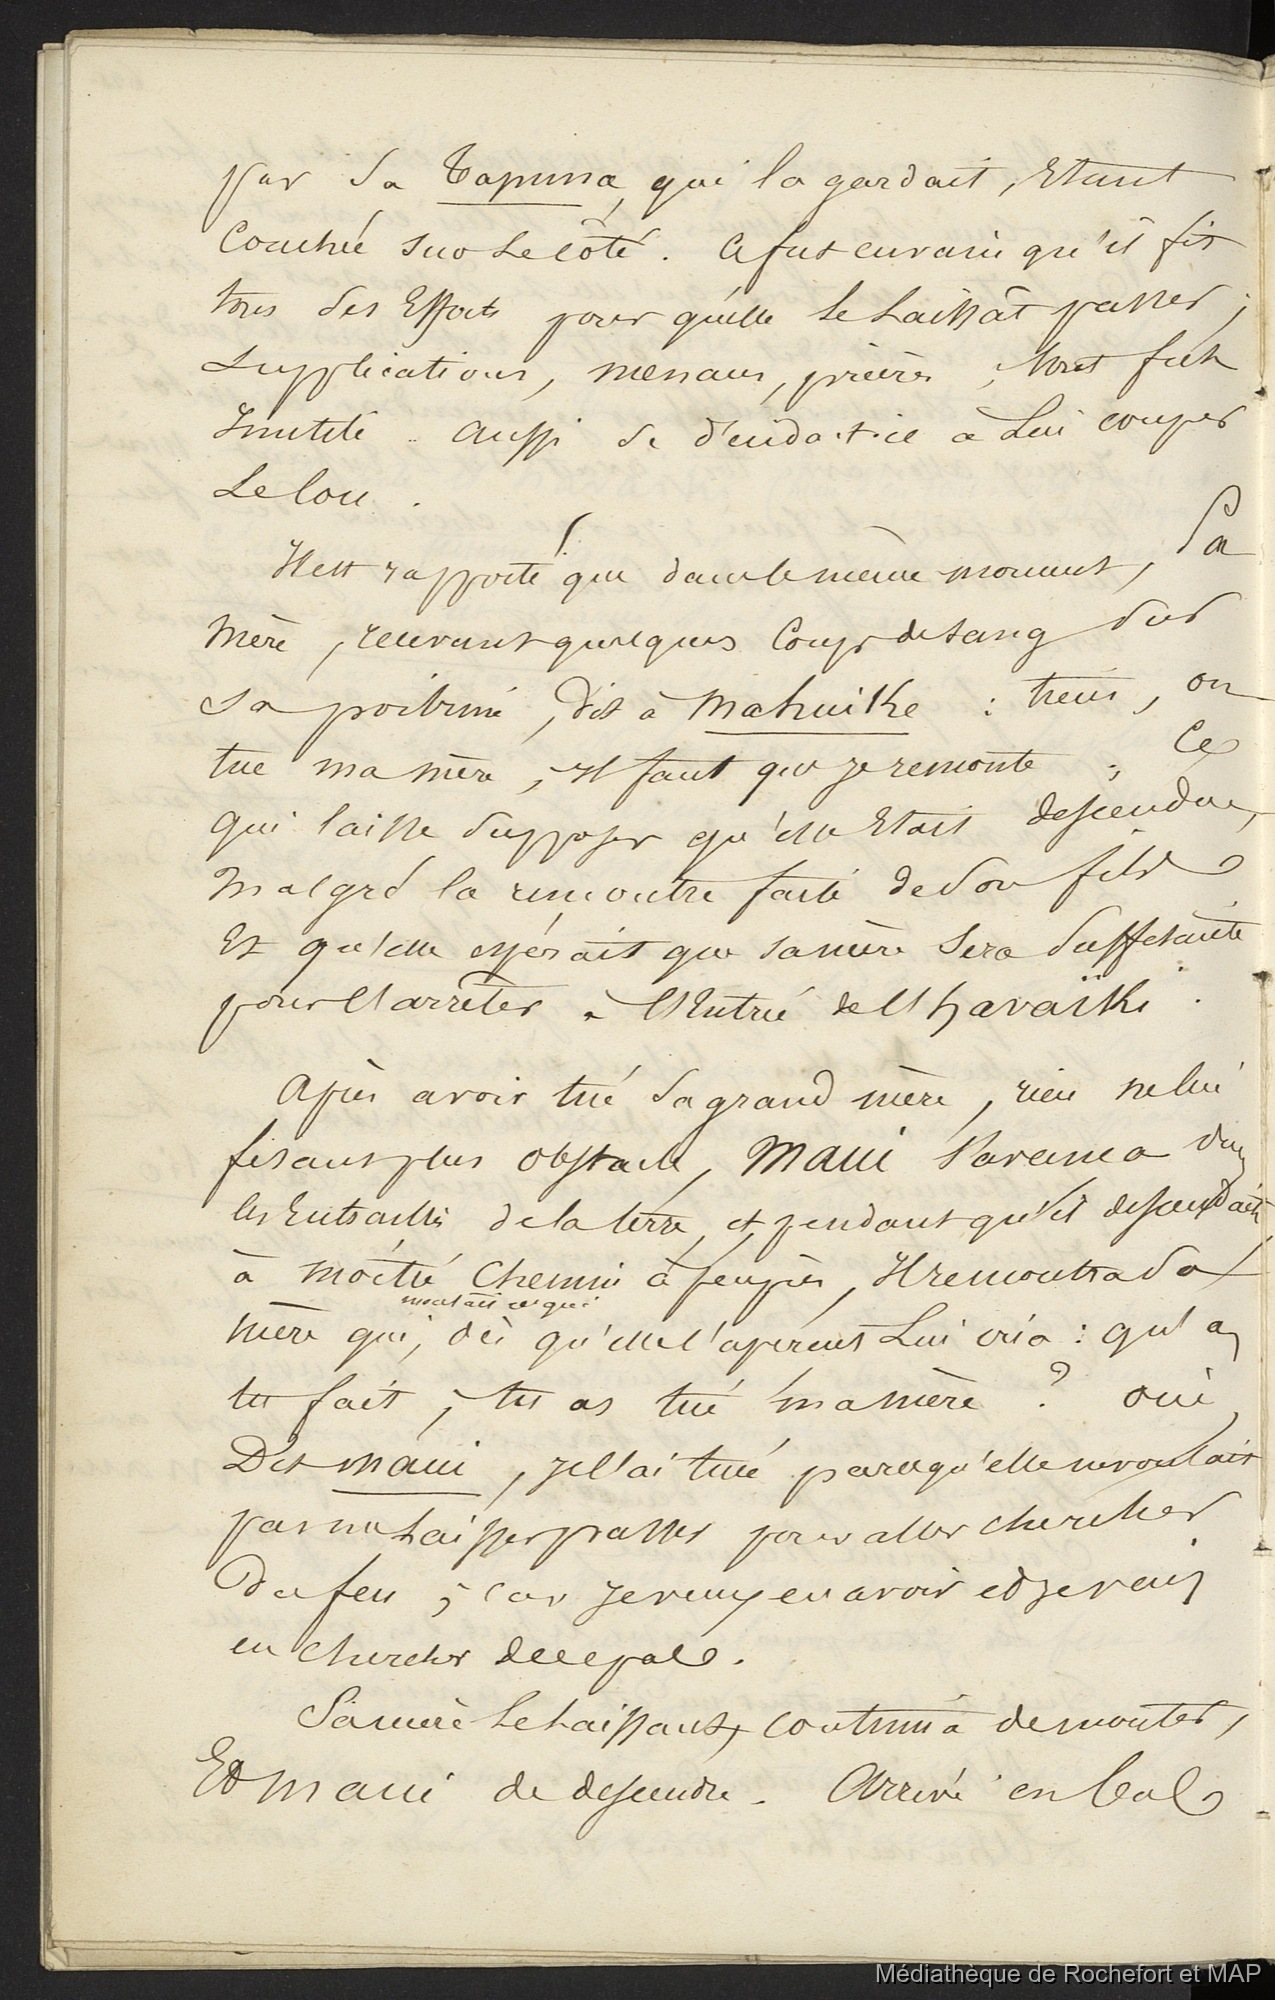 par sa Tapuna, qui la gardait, Etant
Couchée sur le côté. Ce fut en vain qu'il fit
tous ses Efforts pour qu'elle le laissât passer ;
Supplications, menaces, prières, tout fut
Inutile. aussi se décida-t-il à lui couper
le cou.
Il est rapporté que dans le même moment, sa
mère, recevant quelques Coups de sang sur
sa poitrine, dit à Mahuike : tiens, on
tue ma mère, il faut que je remonte ; Ce
qui laisse supposer qu'elle Etait descendue,
malgré la rencontre faite de son fils
Et qu'elle espérait que sa mère sera suffisante
pour l'arrêter à l'Entrée de l'havaïki.
Après avoir tué sa grand mère, rien ne lui
faisant plus obstacle, Maui s'avança dans
les Entrailles de la terre, et pendant qu'il descendait,
à moitié Chemin à peu près, Il rencontra sa
montait et qui
mère qui, dès qu'elle l'aperçut Lui cria : qu'as
tu fait, tu as tué ma mère ? oui,
Dit Maui, je l'ai tué parce qu'elle ne voulait
pas me laisser passer pour aller chercher
Du feu ; car je veux en avoir et je vais
en chercher de ce pas.
Sa mère le laissant, continua de monter,
Et Maui de descendre. Arrivé en bas
Médiathèque de Rochefort et MAP